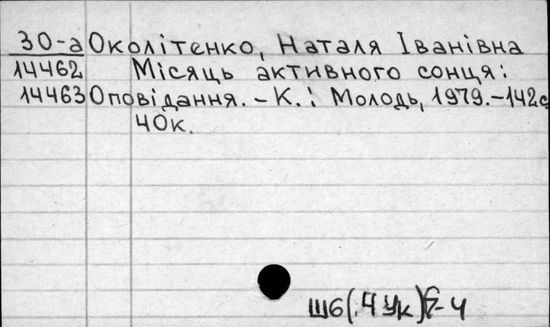 30-а Околітенко, Наталя Іванівна
14462 Місяць активного сонця:
14463 Оповідання. – К.: Молодь, 1979. – 142с
40к.
Ш6(.4Ук)